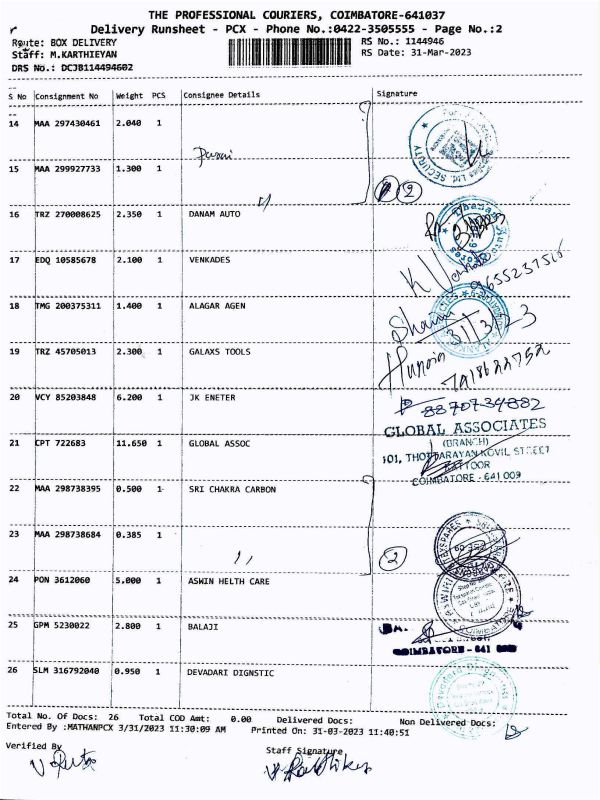 THE PROFESSIONAL COURIERS, COIMBATORE-641037
Delivery Runsheet - PCX - Phone No.:0422-3505555 - Page No.:2
Route: BOX DELIVERY RS No.: 1144946
Staff: M.KARTHIEYAN RS Date: 31-Mar-2023
DRS No.: DCJB114494602
S No Consignment No Weight PCS Consignee Details Signature
14 MAA 297430461 2.040 1
15 MAA 299927733 1.300 1
2
16 TRZ 270008625 2.350 1 DANAM AUTO
17 EDQ 10585678 2.100 1 VENKADES
18 TMG 200375311 1.400 1 ALAGAR AGEN
31/3/23
19 TRZ 45705013 2.300 1 GALAXS TOOLS
20 VCY 85203848 6.200 1 JK ENETER
8870734882
21 CPT 722683 11.650 1 GLOBAL ASSOC
GLOBAL ASSOCIATES
(BRANCH)
COIMBATORE - 641 009
22 MAA 298738395 0.500 1 SRI CHAKRA CARBON
23 MAA 298738684 0.385 1
2
24 PON 3612060 5.000 1 ASWIN HELTH CARE
25 GPM 5230022 2.800 1 BALAJI
COIMBATORE - 641
26 SLM 316792040 0.950 1 DEVADARI DIGNSTIC
Total No. Of Docs: 26 Total COD Amt: 0.00 Delivered Docs: Non Delivered Docs:
Entered By :MATHANPCX 3/31/2023 11:30:09 AM Printed On: 31-03-2023 11:40:51
Verified By Staff Signature